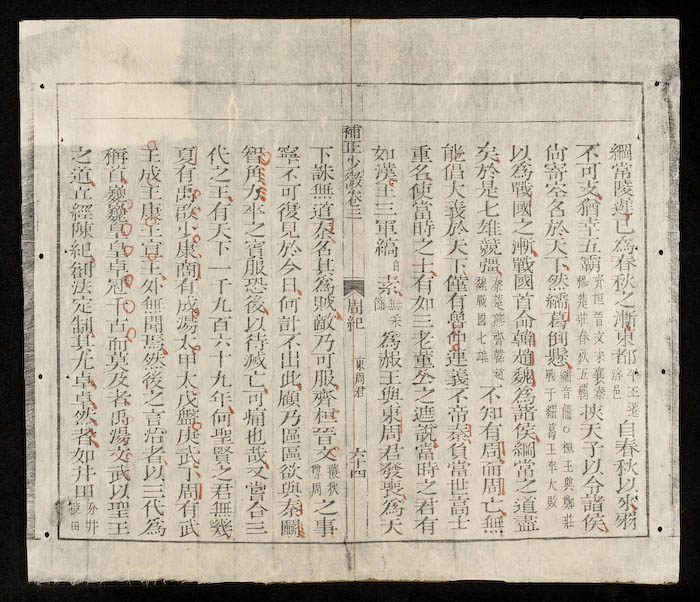 綱常陵遲已爲春秋之漸東都平王遷洛邑自春秋以來弱
不可支猶幸五霸齊桓晉文宋襄秦穆楚莊春秋五霸挾天子以令諸侯
尙寄空名於天下然繻葛倒懸繻音龍○桓王與鄭莊戰于繻葛王卒大敗
以爲戰國之漸戰國首命韓趙魏爲諸侯綱常之道盡
矣於是七雄競彊秦楚燕齊韓趙魏戰國七雄不知有周而周亡無
能倡大義於天下僅有魯仲連義不帝秦負當世高士
重名使當時之士有如三老董公之遮說當時之君有
如漢王三軍縞白素無采飾爲赧王與東周君發喪爲天
補正少微卷三 周紀 東周君 六十四
下誅無道秦名其爲賊敵乃可服齊桓晉文攘狄尊周之事
寧不可復見於今日何計不出此顧乃區區欲與秦鬭
智角力卒之賓服恐後以待滅亡可痛也哉又嘗合三
代之王有天下一千九百六十九年何聖賢之君無幾
夏有禹啟少康商有成湯太甲太戊盤庚武丁周有武
王成王康王宣王外無聞焉然後之言治者以三代爲
稱首巍巍皇皇卓冠千古而莫及者禹湯文武以聖王
之道立經陳紀創法定制其尤卓卓然者如井田分井 田